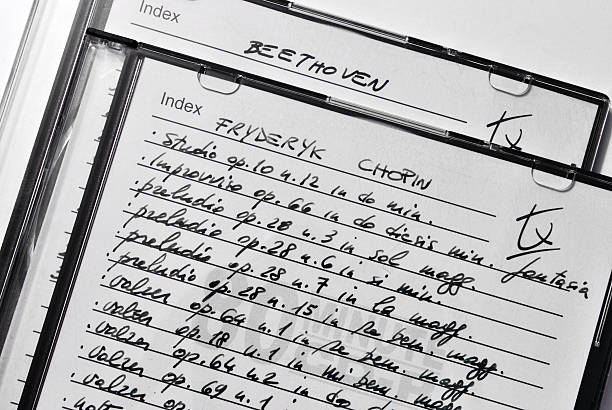 Index
BEETHOVEN
tx
Index
FRYDERYK CHOPIN
tx
· studio op. 10 n. 12 in do min.
· improvviso op. 66 in do diesis min. fantasia
· preludio op. 28 n. 3 in sol magg.
· preludio op. 28 n. 6 in si min.
· preludio op. 28 n. 7 in la magg.
· preludio op. 28 n. 15 in re bem. magg.
· valzer op. 64 n. 1 in re bem. magg.
· valzer op. 18 n. 1 in mi bem. magg.
· valzer op. 64 n. 2 in do
· valzer op. 69 n. 1